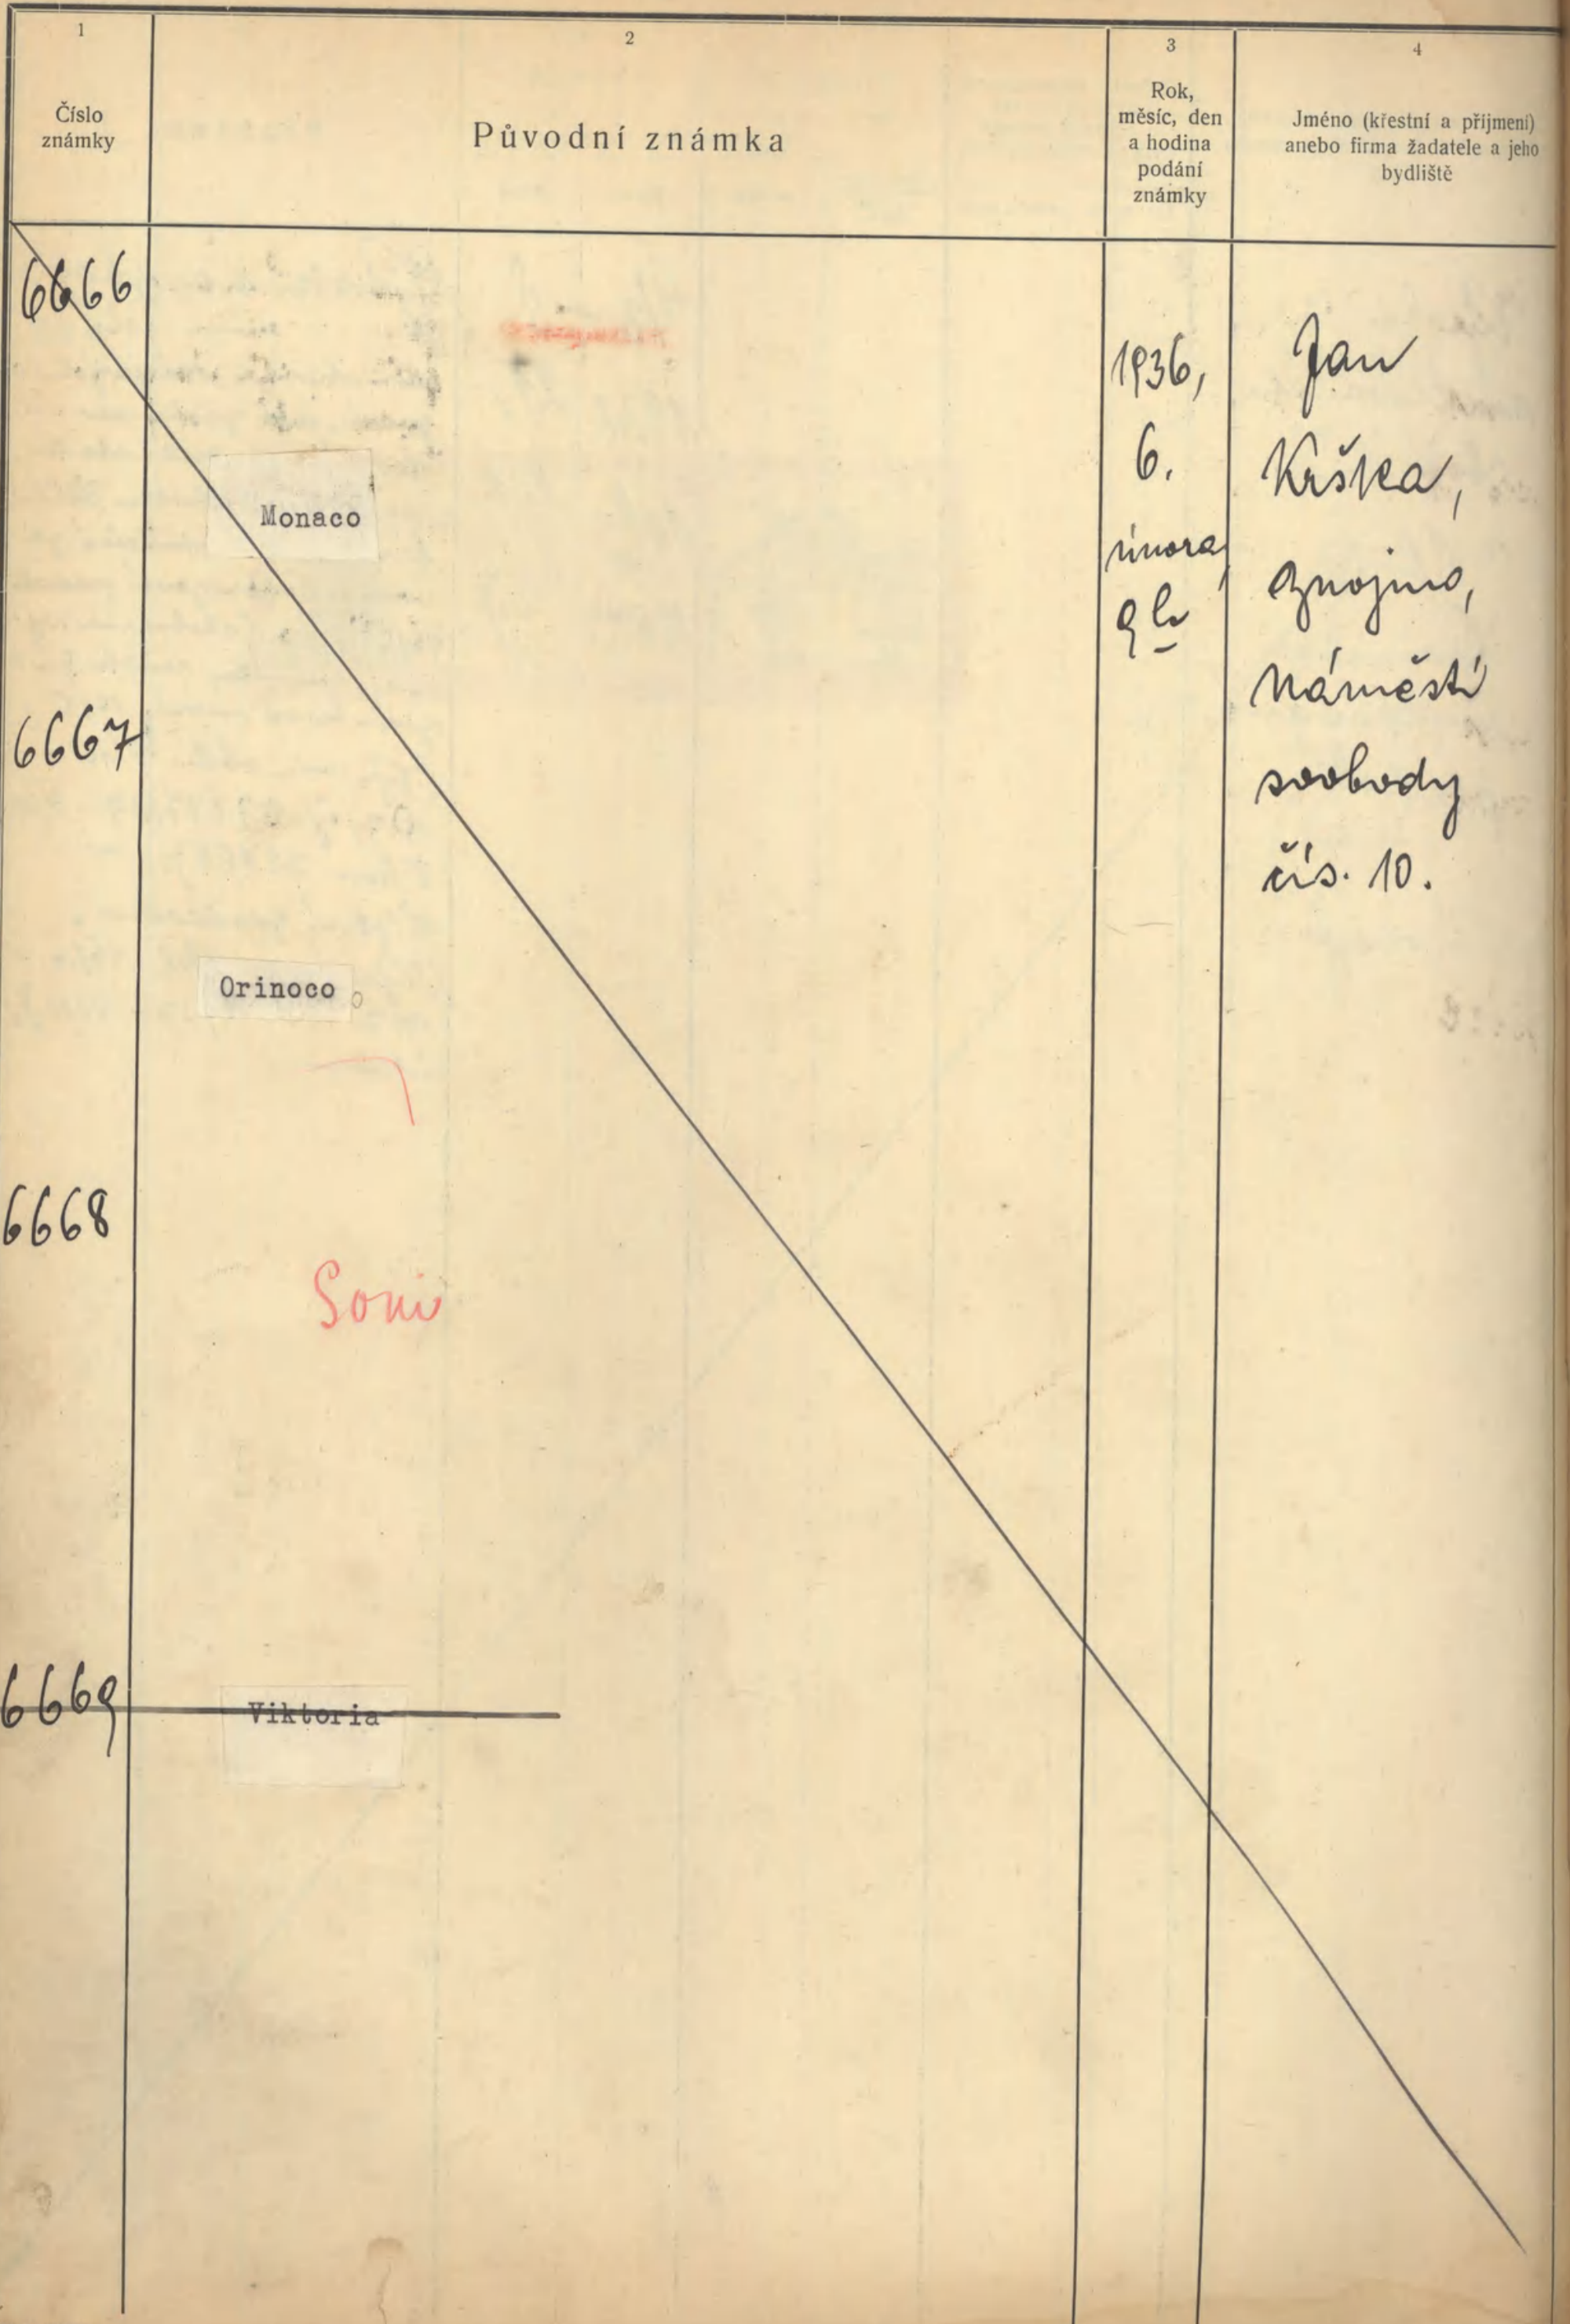 1
Číslo
známky
2
Původní známka
3
Rok,
měsíc, den
a hodina
podání
známky
4
Jméno (křestní a příjmení)
anebo firma žadatele a jeho
bydliště
6666
Monaco
1936,
6.
února,
9 h
Jan
Krška,
Znojmo,
Náměstí
svobody
čís. 10.
6667
Orinoco
6668
6669
Viktoria